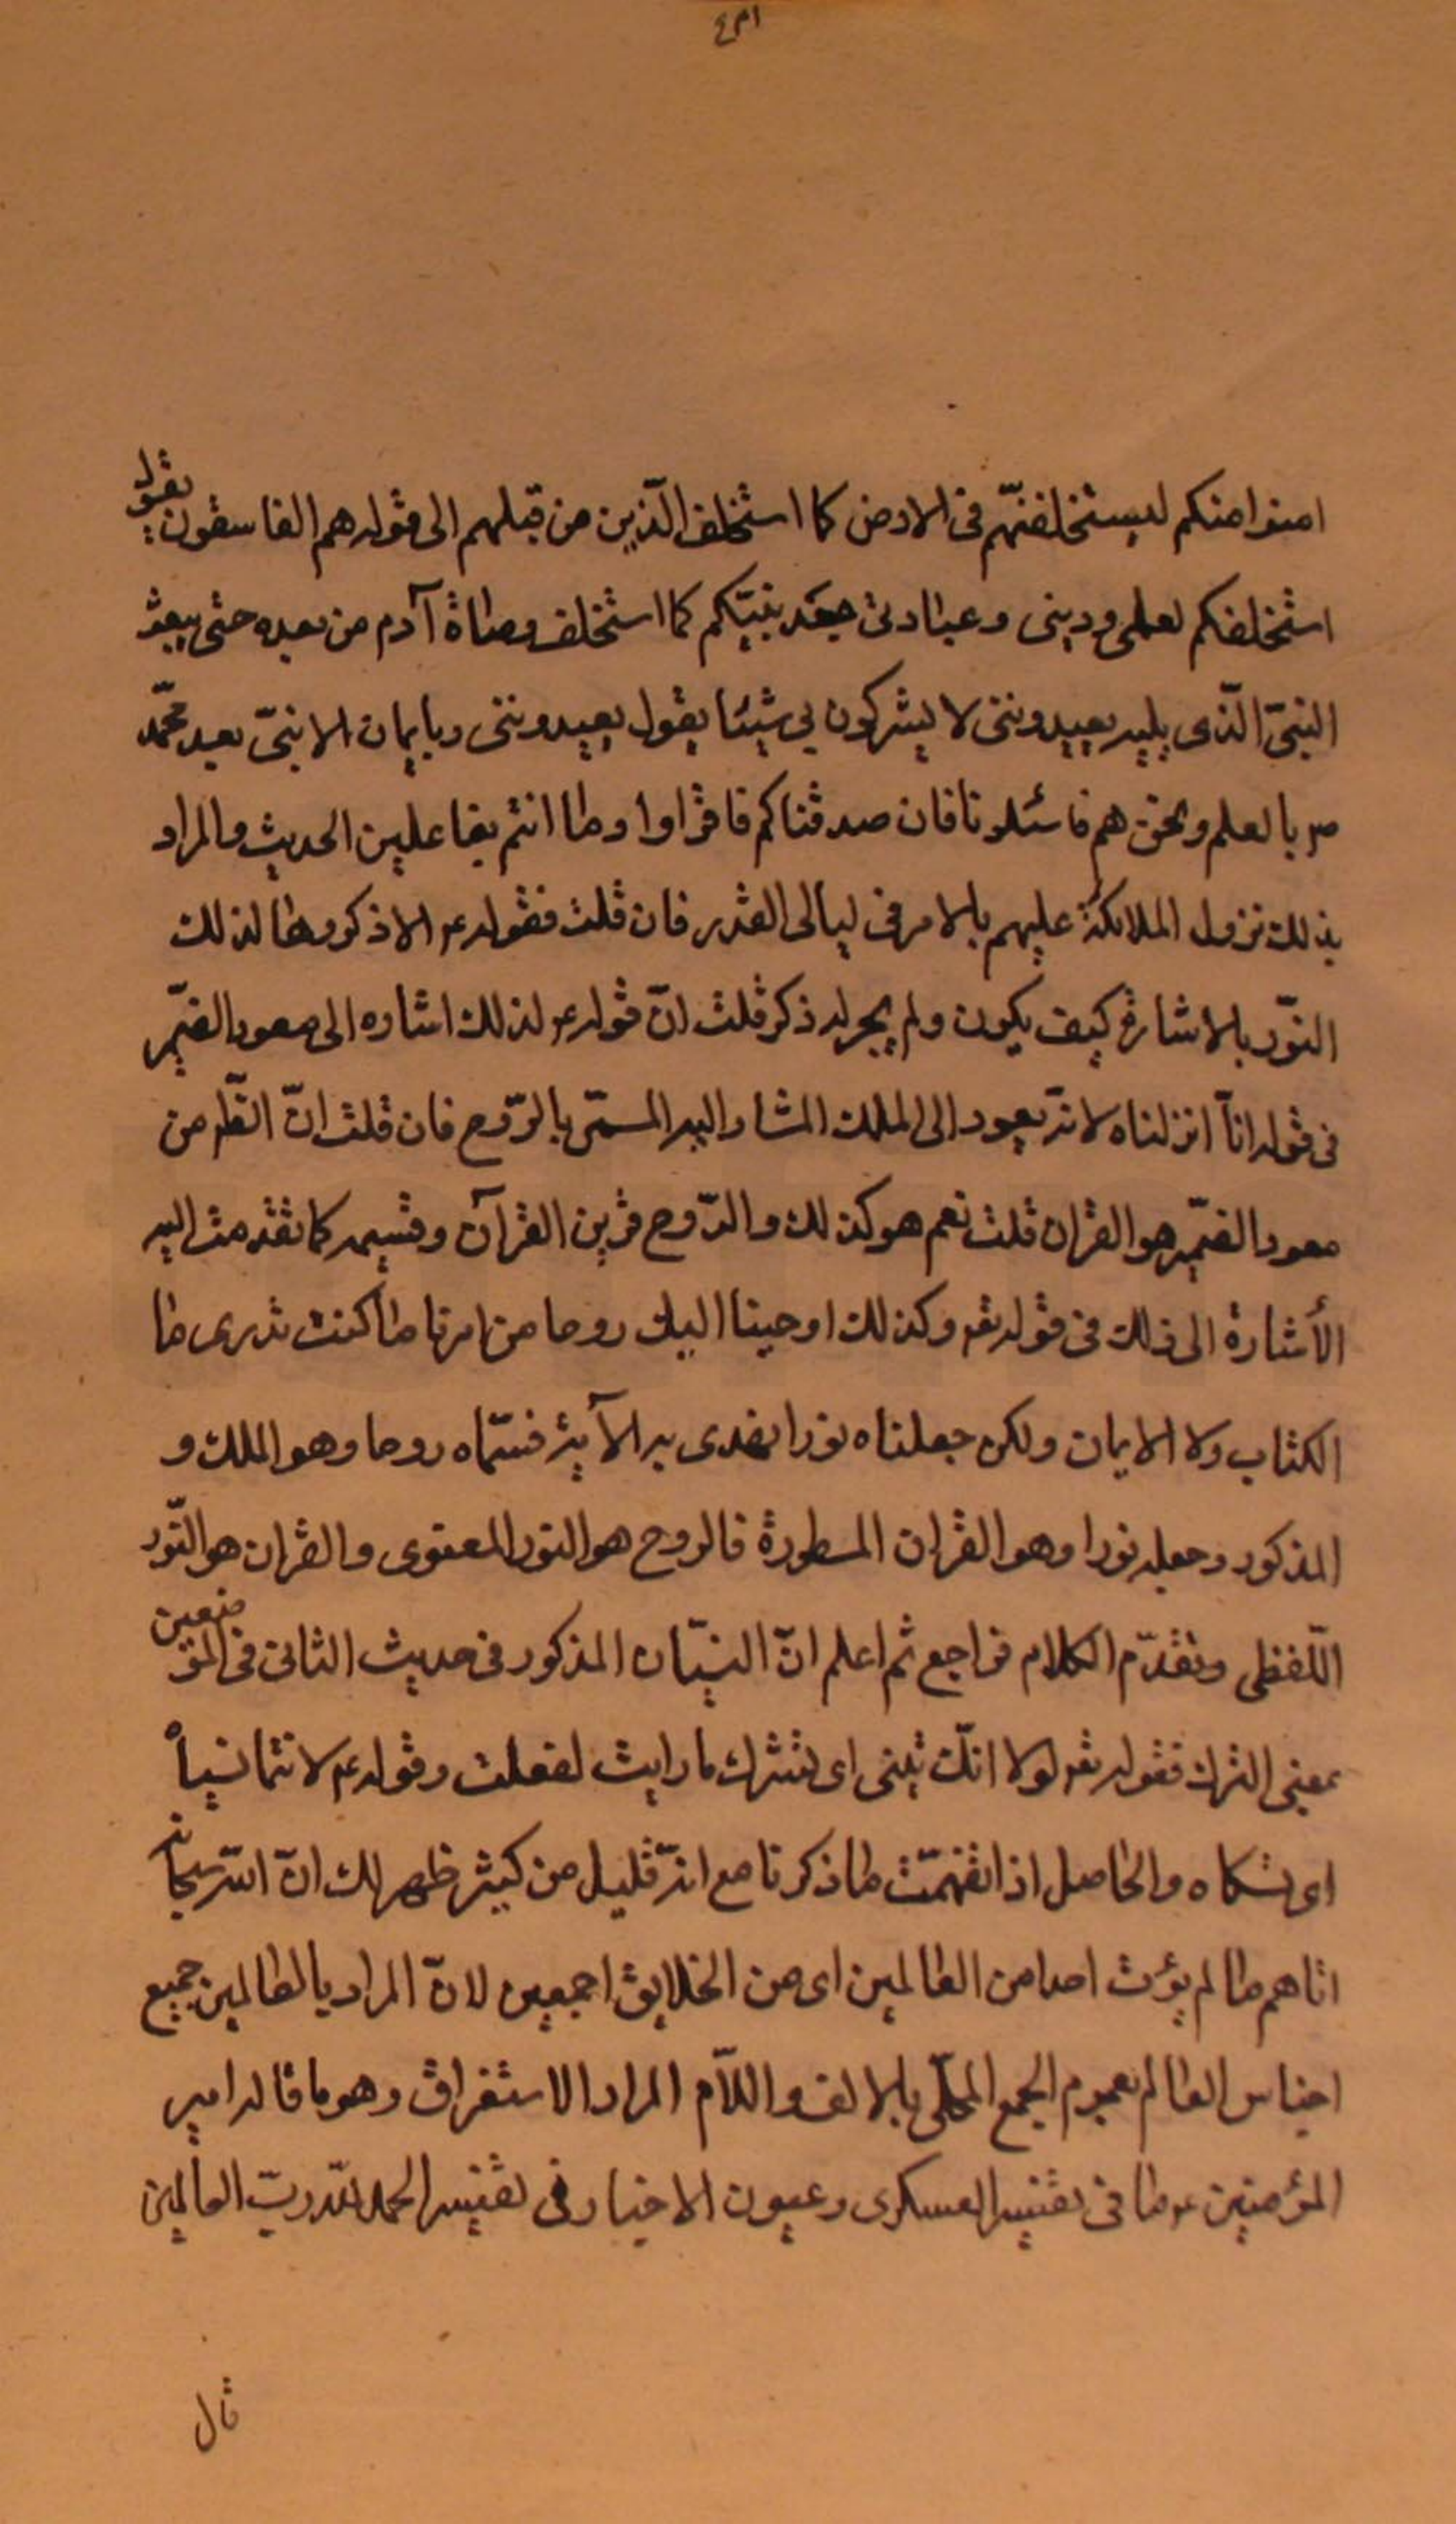 ٤٣١
امنوا منكم ليستخلفنّهم فى الارض كما استخلف الّذين من قبلهم الى قوله هم الفاسقون يقول
استخلفكم لعلمى ودينى وعبادتى بعد نبيّكم كما استخلف وصاة آدم من بعده حتى يبعث
النبىّ الّذى يليه يعبدوننى لا يشركون بي شيئا يقول يعبدوننى وبايمان الا نبىّ بعد محمّد
ص بالعلم ونحن هم فاسئلونا فان صدقناكم فاقراوا وما انتم بفاعلين الحديث والمراد
بذلك نزول الملائكة عليهم بالامر فى ليالى القدر فان قلت فقوله ع الا ذكروها لذلك
النّور بالاشارة كيف يكون ولم يجر له ذكر قلت انّ قوله ع لذلك اشاره الى معود الضمير
فى قوله انّا انزلناه لانه يعود الى الملك المشار اليه المسمّى بالرّوح فان قلت انّ الظ من
معود الضمير هو القران قلت نعم هو كذلك والرّوح قرين القرآن وقسيمه كما تقدمت اليه
الأشارة الى ذلك فى قوله تع وكذلك اوحينا اليك روحا من امرنا ما كنت تدرى ما
الكتاب ولا الايمان ولكن جعلناه نورا نهدى به الآية فسمّاه روحا وهو الملك و
المذكور وجعله نورا وهو القران المسطورة فالروح هو النور المعنوى والقران هو النّور
اللّفظى وتقدّم الكلام فراجع ثم اعلم انّ النسيان المذكور فى حديث الثانى فى الموضعين
بمعنى الترك فقوله تع لولا انك تنسى اى تترك ما رايت لفعلت وقوله ع لانتما نسياً
اى تركاه والحاصل اذا تفهمّت ما ذكرنا مع انه قليل من كثير ظهر لك انّ اللّه سبحانه
اتاهم ما لم يؤت احدا من العالمين اى من الخلايق اجمعين لانّ المراد بالعالمين جميع
اجناس العالم بعموم الجمع المحلّى بالالف واللّام المراد الاستغراق وهو ما قاله امير
المؤمنين ع ما فى تفسير العسكرى وعيون الاخبار فى تفسير الحمد للّه ربّ العالمين
قال